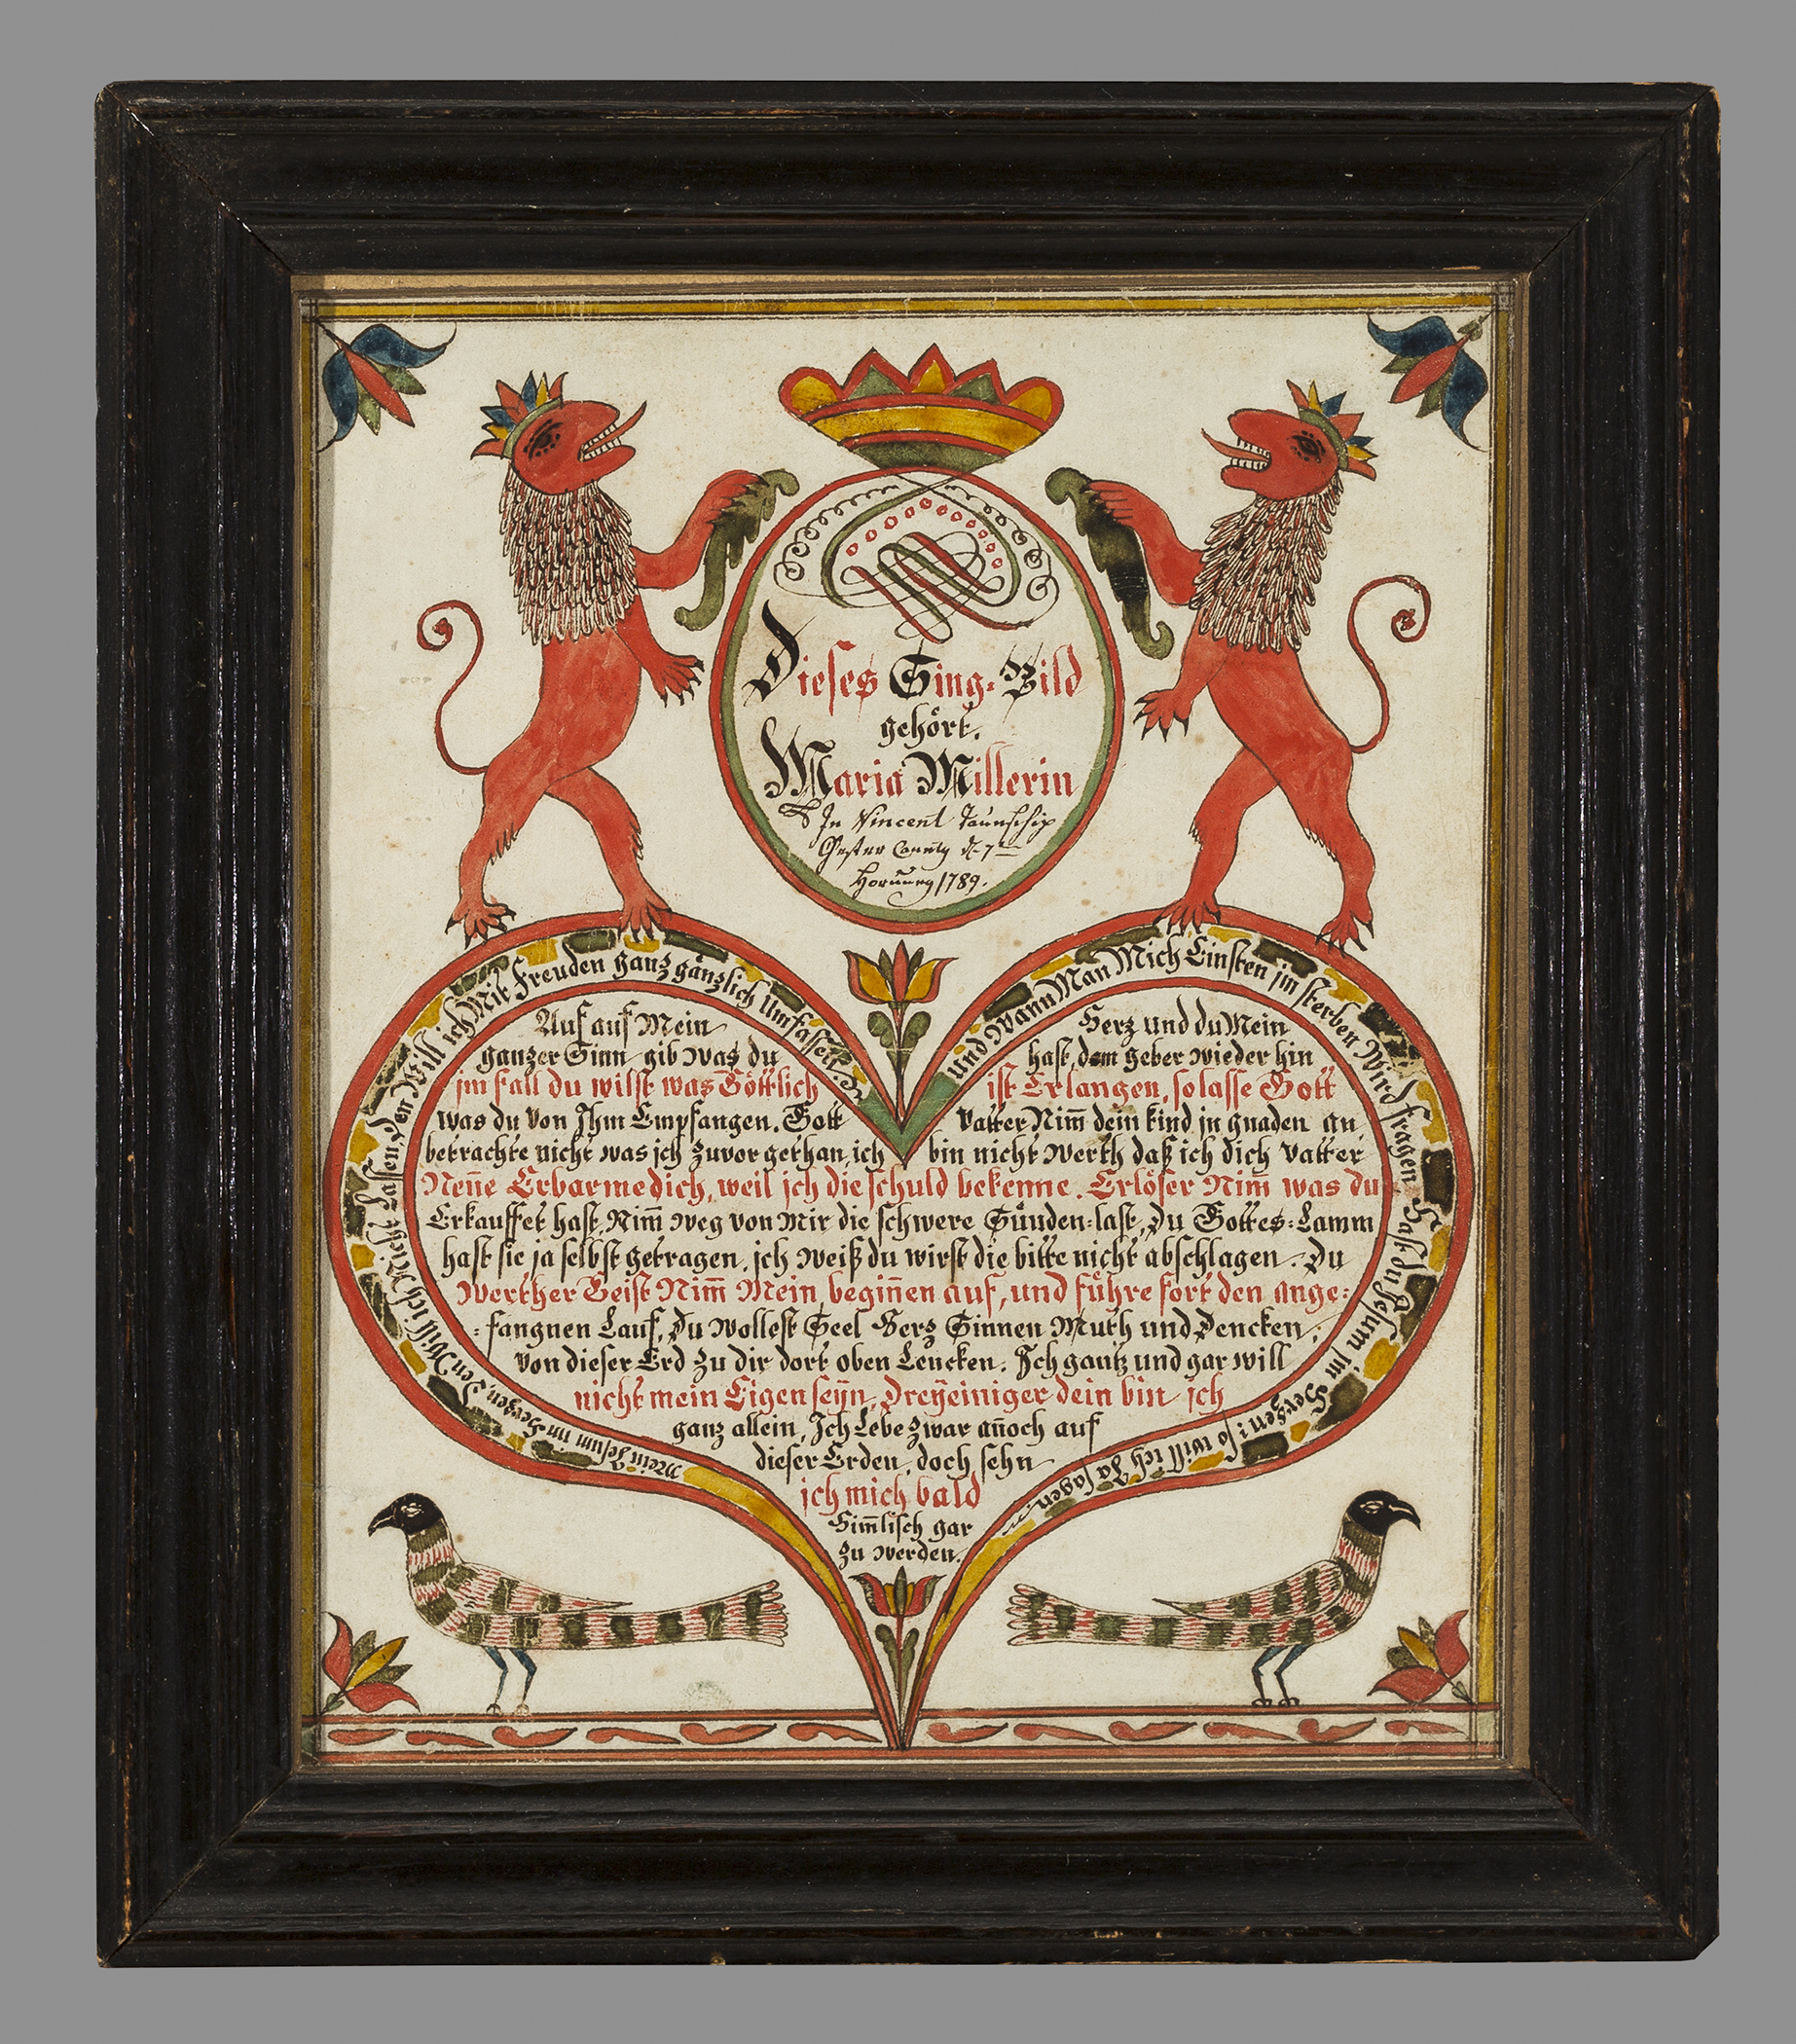 Dieses Sing-Bild
gehört.
Maria Millerin
In Vincent Taunschip
Chester Caunty d. 7ten
Hornung 1789.
Mein Jesum im Hergen, den Will ich Nicht Lasen, den Will ich Mit Freuden ganz gänzlich Umfasen.
und Wann Man Mich Einsten jm sterben Wird fragen Hast du Jesum im Hergen: so will ich Ja sagen.
Auf auf Mein Herz und du Mein
ganzer Sinn gib was du hast, dem geber wieder hin
jm fall du wilst was Göttlich ist Erlangen, so lasse Gott
was du von Jhm Empfangen. Gott Vatter Nim̄ dein kind jn gnaden an,
betrachte nicht was jch zuvor gethan, ich bin nicht werth daß ich dich Vatter
Neñe Erbarme dich, weil jch die schuld bekenne. Erlöser Nim̄ was du
Erkauffet hast, Nim̄ weg von Mir die schwere Sünden=last, Du Gottes=Lamm
hast sie ja selbst getragen, jch weiß du wirst die bitte nicht abschlagen. Du
Werther Geist Nim̄ Mein begiñen auf, und führe fort den ange=
=fangnen Lauf, Du wollest Seel Herz Sinnen Muth und Dencken,
von dieser Erd zu dir dort oben Lencken. Jch gantz und gar will
nicht mein Eigen seÿn, Dreÿeiniger dein bin jch
ganz allein, Jch Lebe zwar añoch auf
dieser Erden, doch sehn
jch mich bald
Him̄lisch gar
zu werden.